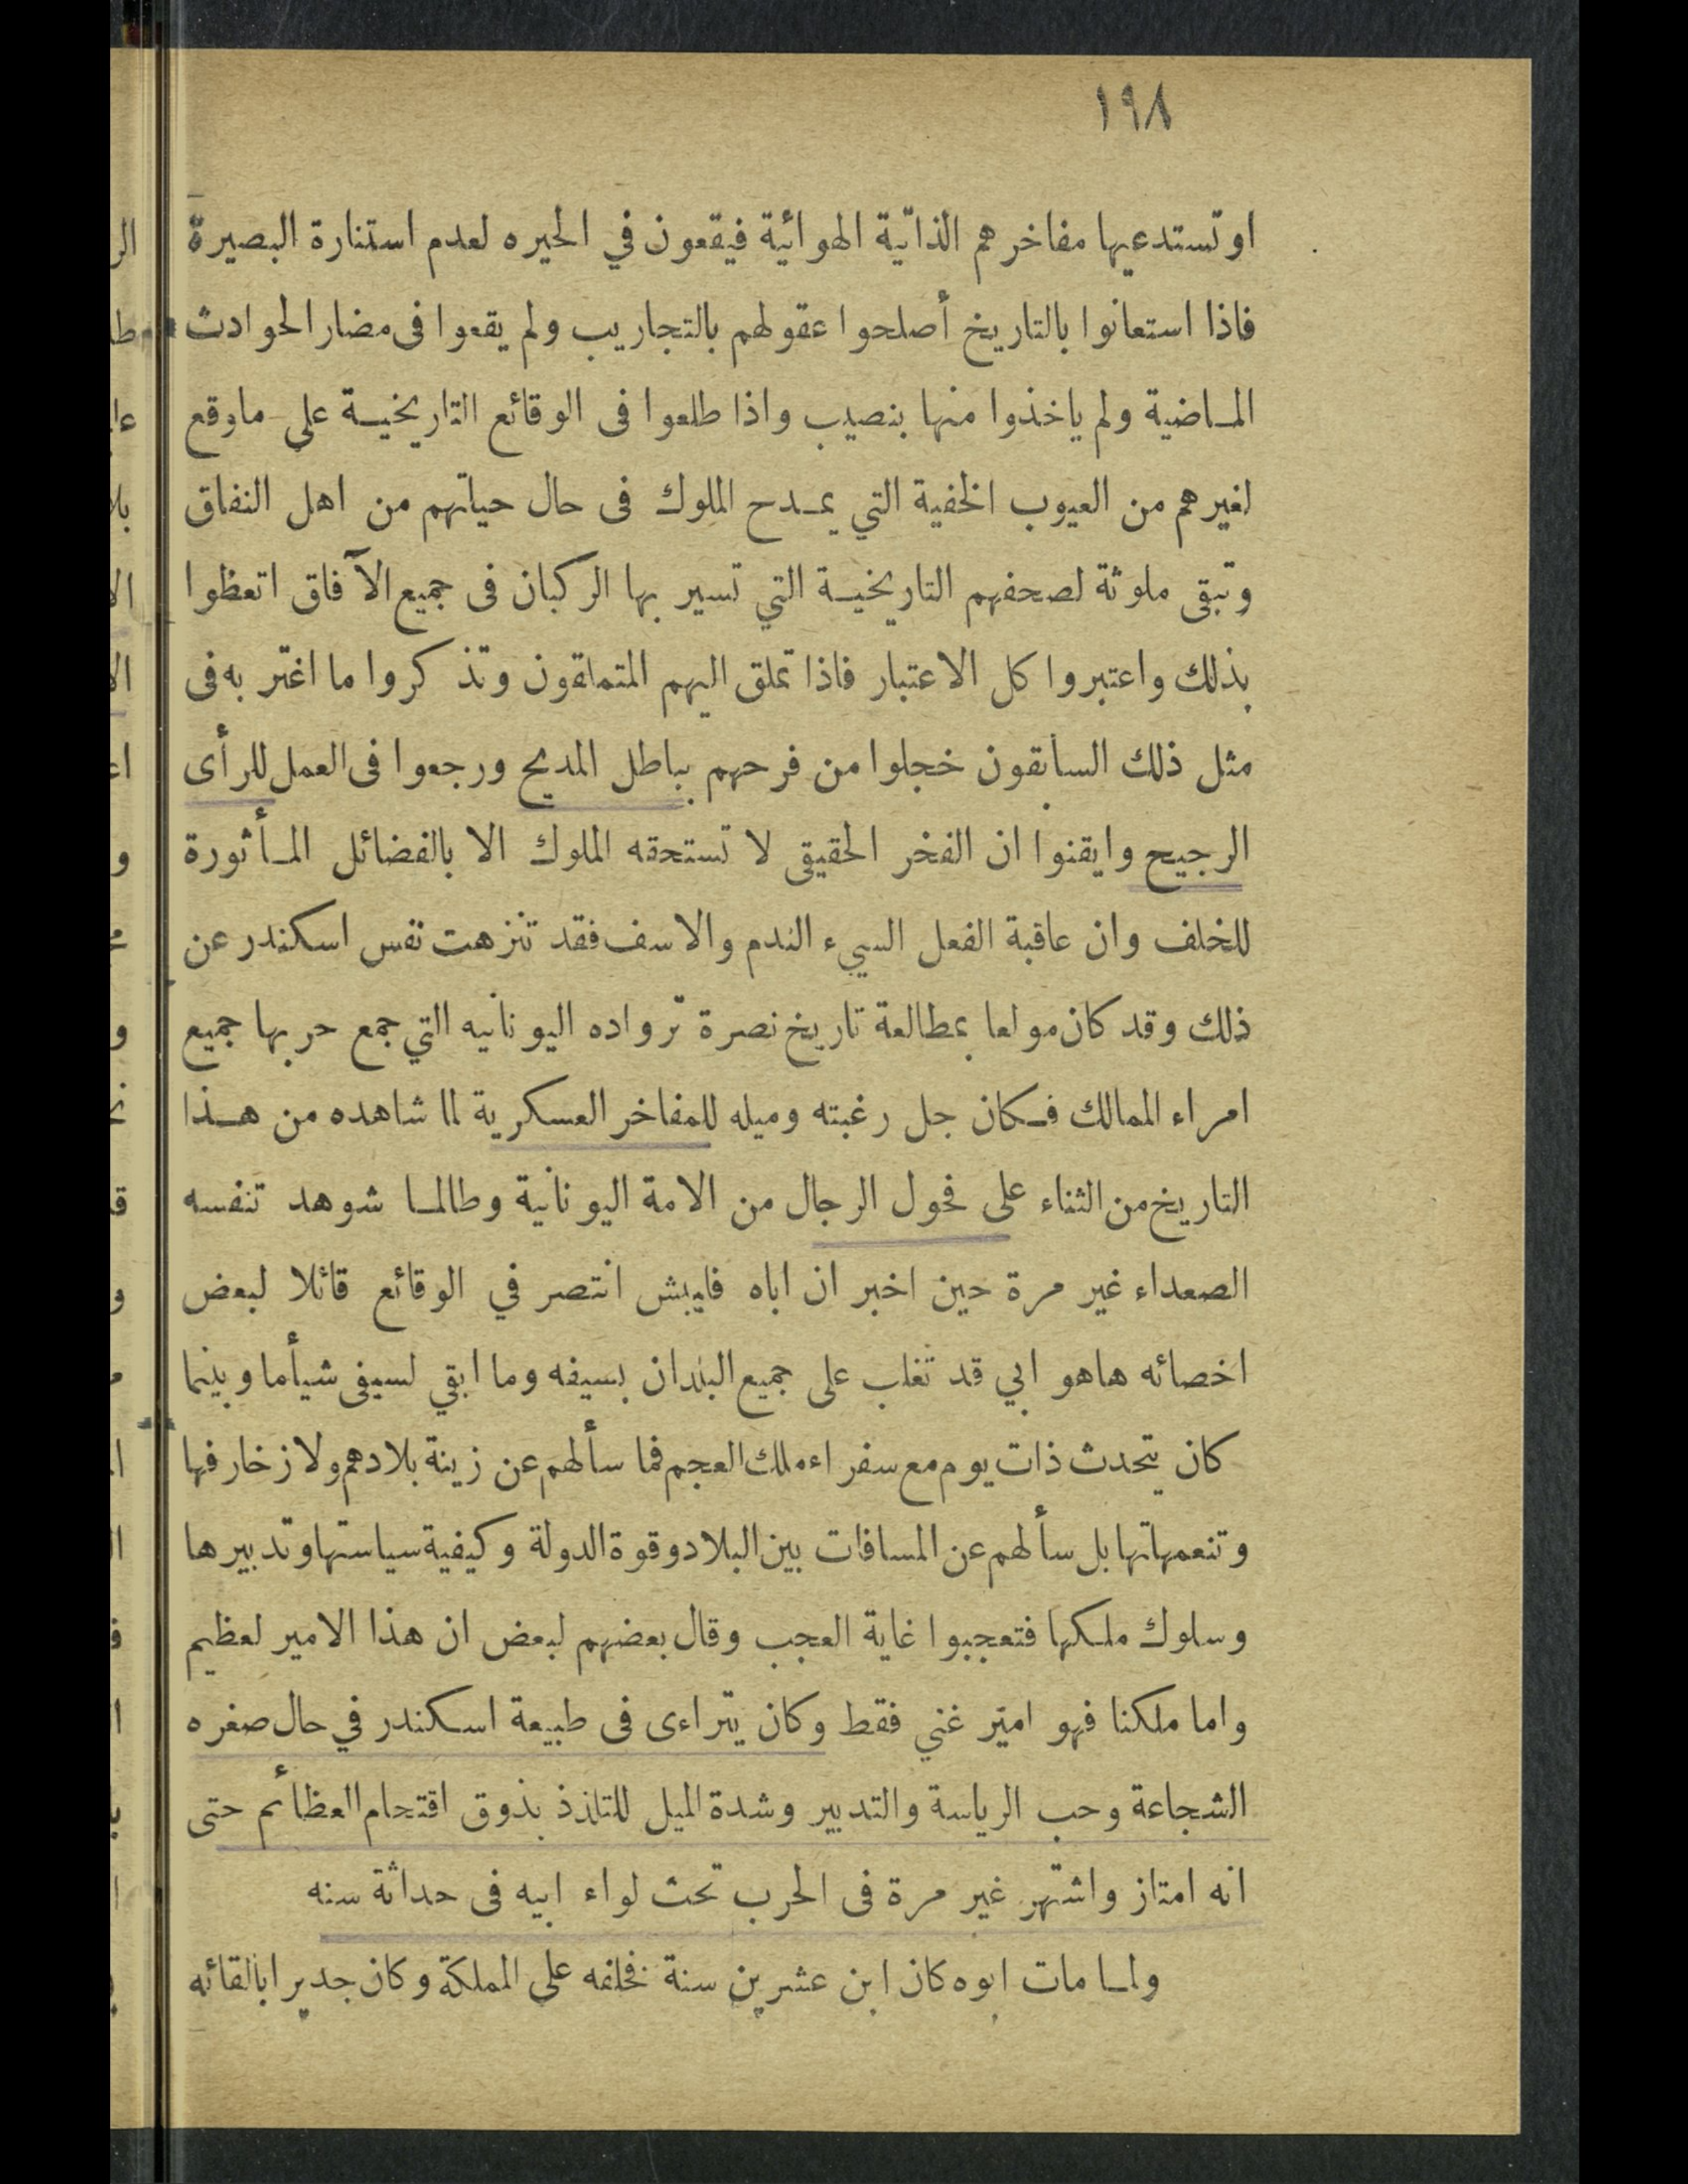 ١٩٨
او تستدعيها مفاخرهم الذاتية الهوائية فيقعون في الحيره لعدم استنارة البصيرة
فاذا استعانوا بالتاريخ أصلحوا عقولهم بالتجاريب ولم يقعوا فى مضار الحوادث
المـاضية ولم ياخذوا منها بنصيب واذا طلعوا فى الوقائع التاريخيـة على ماوقع
لغيرهم من العيوب الخفية التي يمـدح الملوك فى حال حياتهم من اهل النفاق
وتبقى ملوثة لصحفهم التاريخيـة التي تسير بها الركبان فى جميع الآفاق اتعظوا
بذلك واعتبروا كل الاعتبار فاذا تملق اليهم المتملقون وتذكروا ما اغتر به فى
مثل ذلك السابقون خجلوا من فرحهم بباطل المديح ورجعوا فى العمل للرأى
الرجيح وايقنوا ان الفخر الحقيقى لا تستحقه الملوك الا بالفضائل المـأثورة
للخلف وان عاقبة الفعل السيء الندم والاسف فقد تنزهت نفس اسكندر عن
ذلك وقد كان مولعا بمطالعة تاريخ نصرة ترواده اليونانيه التي جمع حربها جميع
امراء الممالك فـكان جل رغبته وميله للمفاخر العسكرية لما شاهده من هـذا
التاريخ من الثناء على فحول الرجال من الامة اليونانية وطالمـا شوهد تنفسه
الصعداء غير مرة حين اخبر ان اباه فليبش انتصر في الوقائع قائلا لبعض
اخصائه هاهو ابي قد تغلب على جميع البلدان بسيفه وما ابقي لسيفى شيأما وبينما
كان يتحدث ذات يوم مع سفراء ملك العجم فما سألهم عن زينة بلادهم ولا زخارفها
وتنعمهاتها بل سألهم عن المسافات بين البلاد وقوة الدولة وكيفية سياستها وتدبيرها
وسلوك ملكها فتعجبوا غاية العجب وقال بعضهم لبعض ان هذا الامير لعظيم
واما ملكنا فهو امير غني فقط وكان يتراءى فى طبيعة اسكندر في حال صغره
الشجاعة وحب الرياسة والتدبير وشدة الميل للتلذذ بذوق اقتحام العظائم حتى
انه امتاز واشتهر غير مرة فى الحرب تحت لواء ابيه فى حداثة سنه
ولمـا مات ابوه كان ابن عشرين سنة فخلفه على المملكة وكان جديرا بالقائه